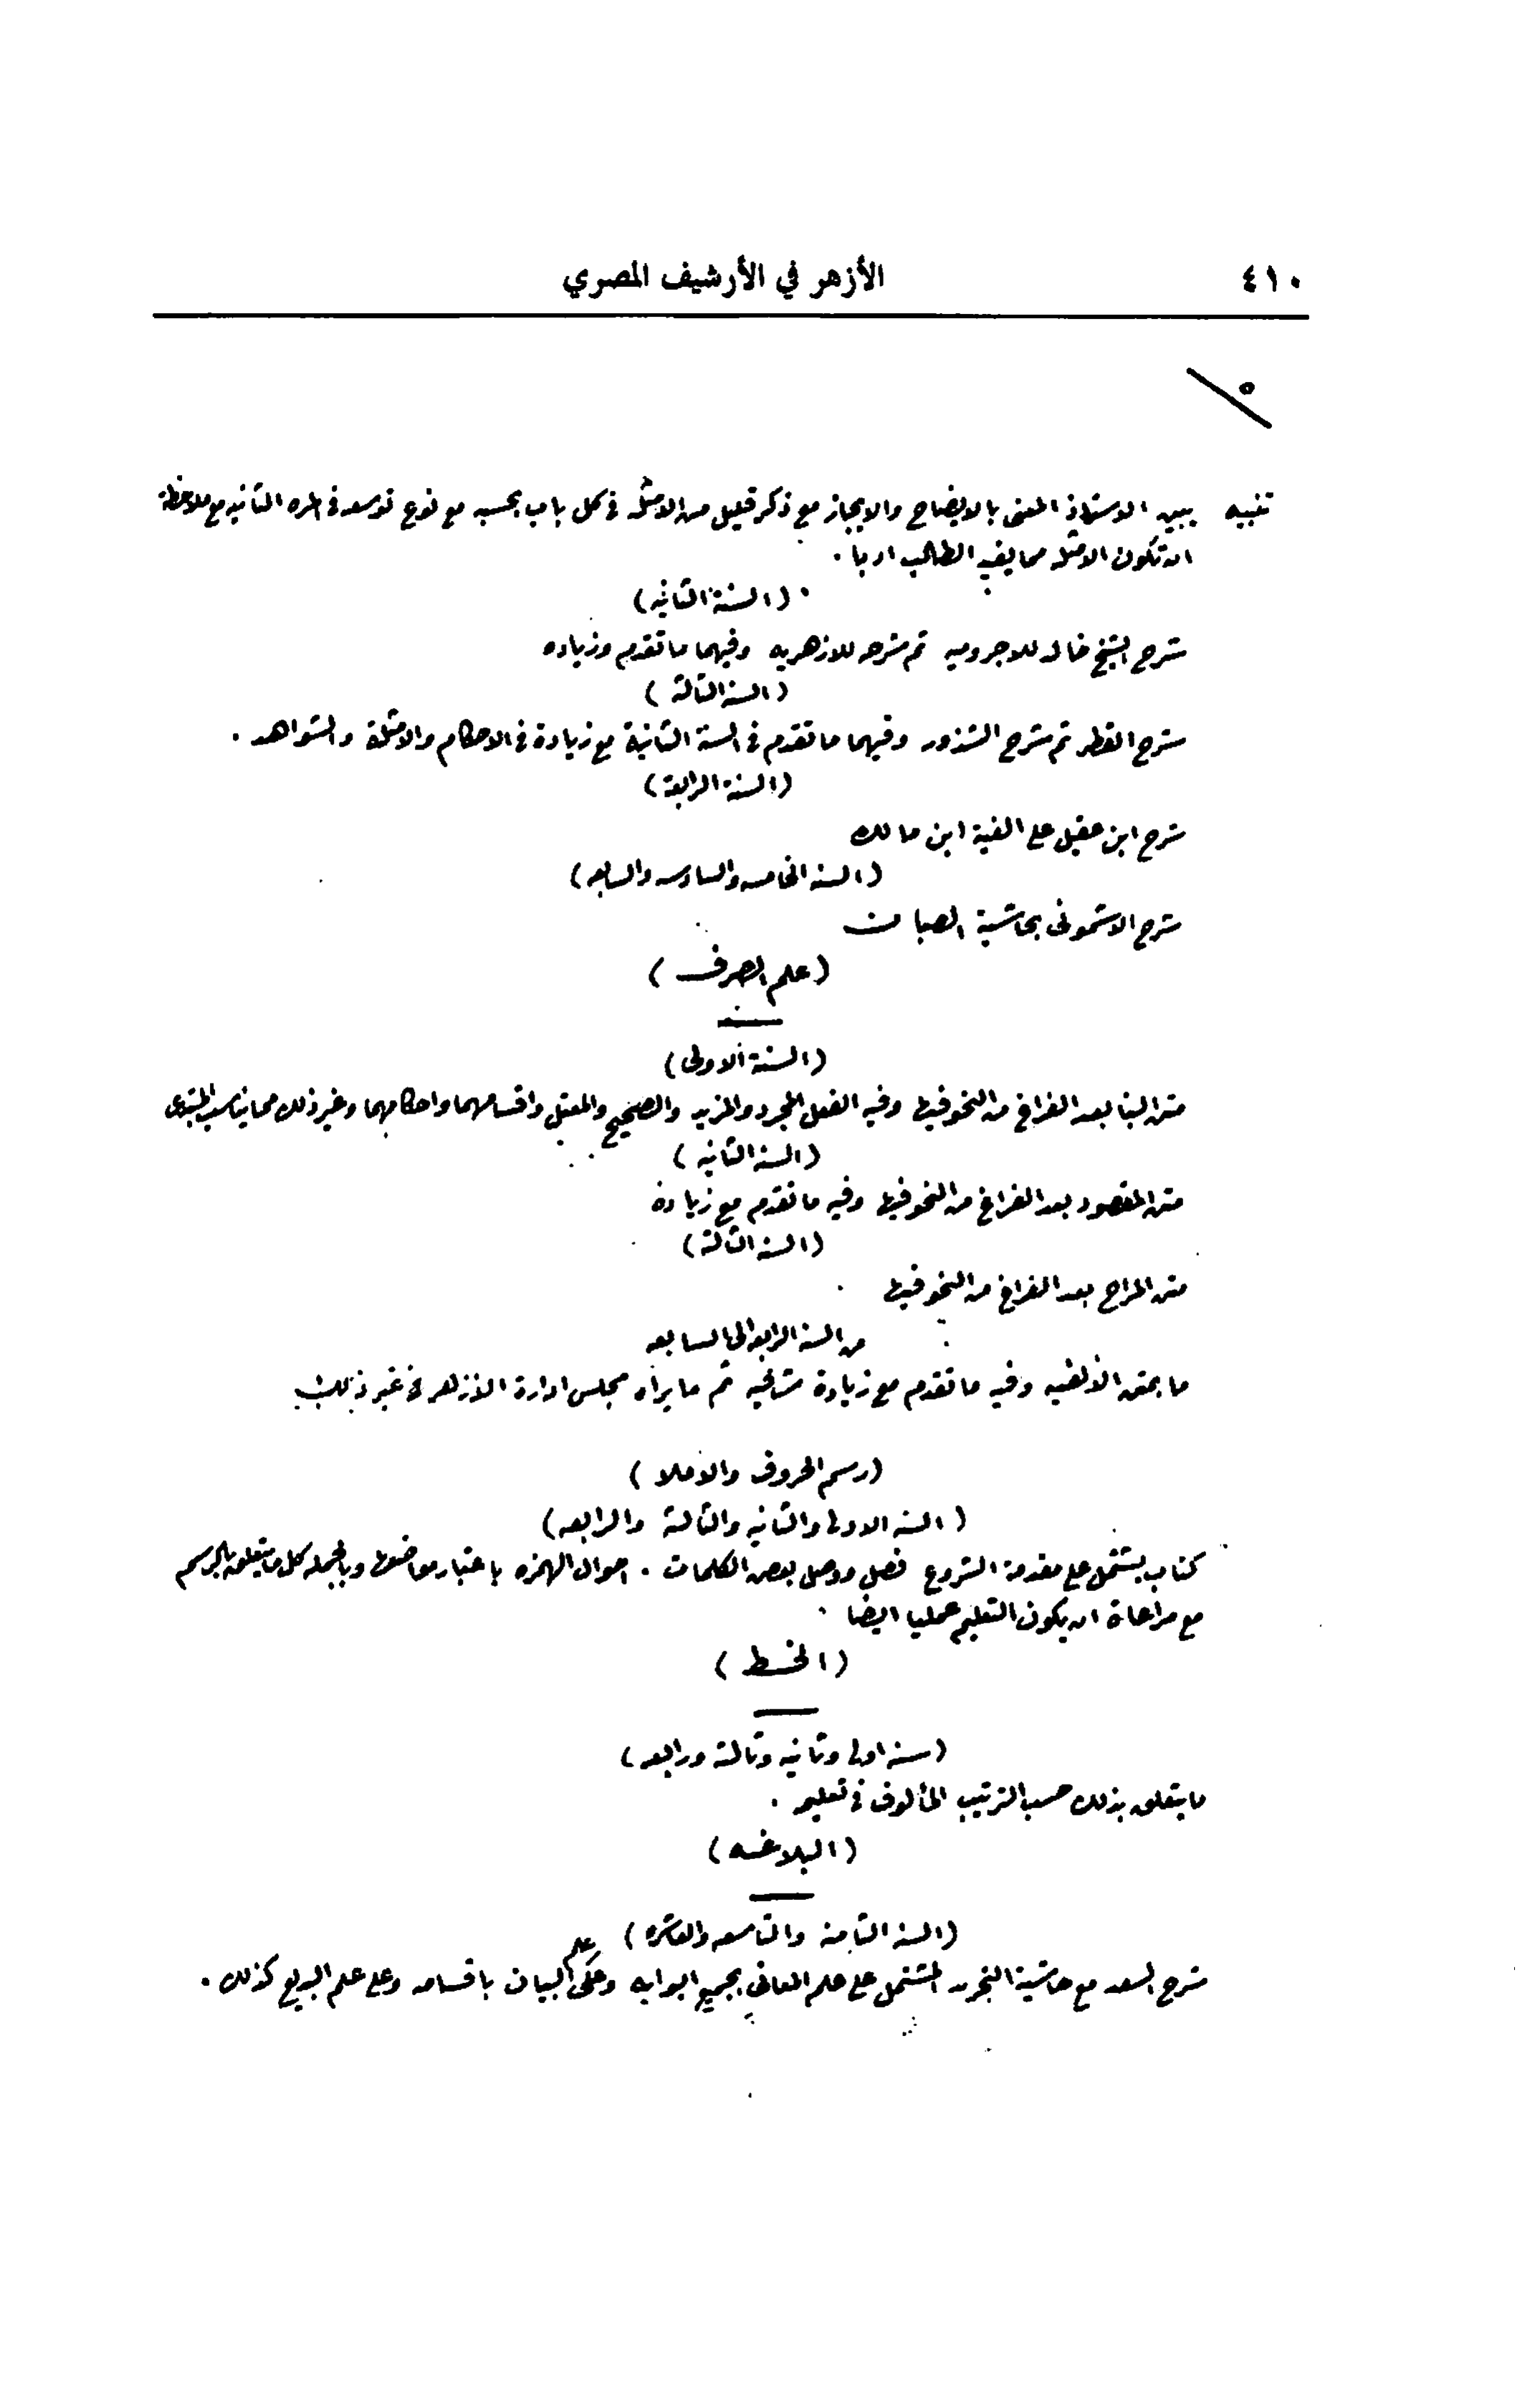 ٤١٠ الأزهر في الأرشيف المصري
٥
تنبيه يبين الاستاذ المعنى بالايضاح والايجاز مع ذكر قليل من الامثله فى كل باب بحسبه مع نوع توسعه فى المره الثانيه مع ملاحظة
ان تكون الامثله مما يفيد الطالب ادبا .
(السنة الثانيه)
شرح الشيخ خالد للاجروميه ثم شرحه للازهريه وفيهما ما تقدم وزياده
(السنة الثالثة)
شرح القطر ثم شرح الشذور وفيهما ما تقدم فى السنة الثانية مع زيادة فى الاحكام والامثلة والشواهد .
(السنة الرابعة)
شرح ابن عقيل على الفية ابن مالك
(السنه الخامسه والسادسه والسابعه)
شرح الاشمونى بحاشية الصبان
(علم الصرف)
(السنة الاولى)
متن البنا بعد الفراغ من النحو فيها وفيه الفعل المجرد والمزيد والصحيح والمعتل واقسامهما واحكامهما وغير ذلك مما يناسب المبتدى
(السنة الثانيه)
متن المقصود بعد الفراغ من النحو فيها وفيه ما تقدم مع زيادة
(السنة الثالثة)
متن المراح بعد الفراغ من النحو فيها
من السنة الرابعه الى السابعه
ما بمتن الالفيه وفيه ما تقدم مع زيادة ثم ما يراه مجلس ادارة الازهر فى غير ذلك
(رسم الحروف والاملا)
(السنه الاولى والثانيه والثالثة والرابعه)
كتاب يشتمل على مقدمة الشروع فصل ووصل بعض الكلمات . احوال الهمزه باعتبار مواضعها وبالجمله كل ما يتعلق بالرسم
مع مراعاة ان يكون التعليم عمليا ايضا .
(الخط)
(سنة اولى وثانيه وثالثة ورابعه)
ما يتعلق بذلك حسب الترتيب المألوف فى تعليمه .
(البلاغه)
(السنة الثامنة والتاسعه والعاشره)
شرح السعد مع حاشية التجريد المشتمل على علم المعانى بجميع ابوابه وعلى علم البيان باقسامه وعلى علم البديع كذلك .